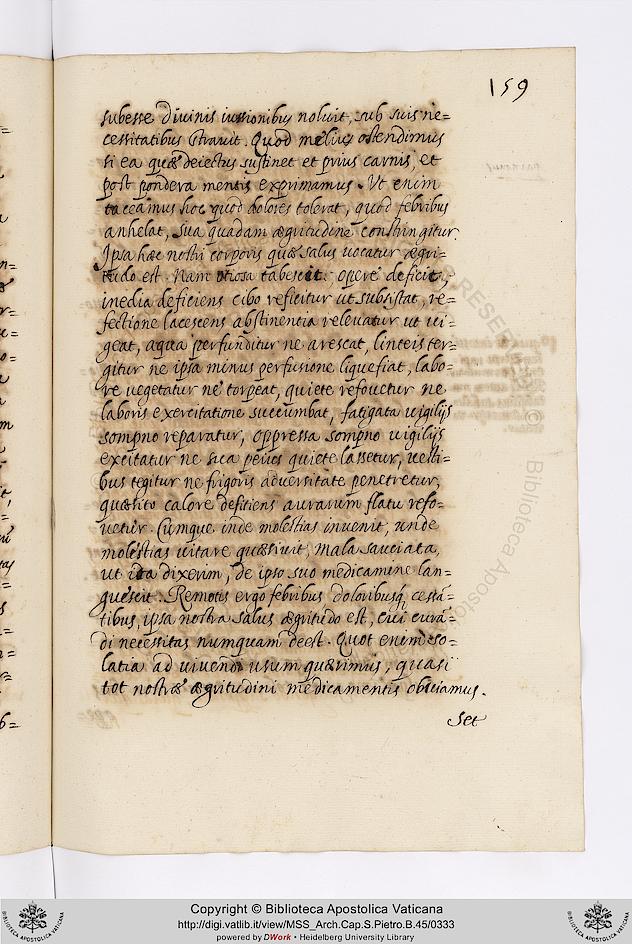 159
subesse divinis iussionibus noluit, sub suis ne=
cessitatibus stravit. Quod melius ostendimus
si ea quæ deiectus sustinet et prius carnis, et
post pondera mentis exprimamus. Ut enim
taceamus hoc quod dolores tolerat, quod febribus
anhelat, sua quadam ægritudine constringitur.
Ipsa hæc nostri corporis quæ salus vocatur ægri=
tudo est. Nam otiosa tabescit, opere deficit,
inedia deficiens cibo reficitur ut subsistat, re=
fectione lacescens abstinentia relevatur ut vi=
geat, aqua perfunditur ne arescat, linteis ter=
gitur ne ipsa minus perfusione liquefiat, labo=
re vegetatur ne torpeat, quiete refovetur ne
laboris exercitatione succumbat, fatigata vigilijs
sompno reparatur, oppressa sompno vigilijs
excitatur ne sica peius quiete lassetur, vesti=
bus tegitur ne frigoris adversitate penetretur,
quæsito calore defitiens aurarum flatu refo=
vetur. Cumque inde molestias invenit, unde
molestias vitare quæsivit, Mala sauciata,
ut ita dixerim, de ipso suo medicamine lan=
guescit. Remotis ergo febribus doloribusq cessã=
tibus, ipsa nostra salus ægritudo est, cui curã=
di necessitas numquam deest. Quot enim so=
latia ad vivendi usum quærimus, quasi
tot nostræ ægritudini medicamentis obviamus.
Set
RESERV
© Biblioteca Aposto
Copyright © Biblioteca Apostolica Vaticana
http://digi.vatlib.it/view/MSS_Arch.Cap.S.Pietro.B.45/0333
powered by DWork • Heidelberg University Library